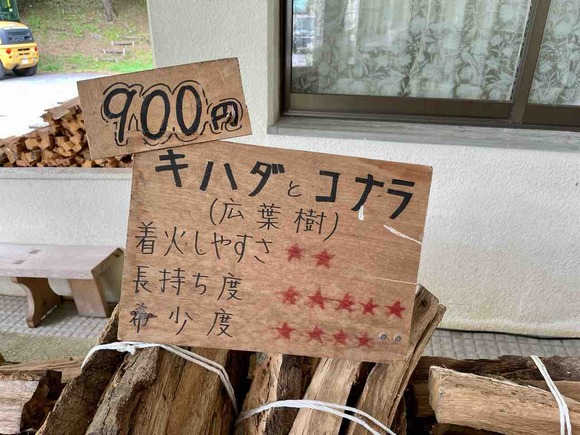 900円
キハダとコナラ
(広葉樹)
着火しやすさ ★★
長持ち度 ★★★★★
希少度 ★★★★